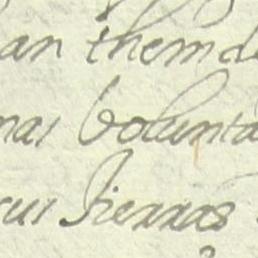 an them de
mas Volunta
cui tierras